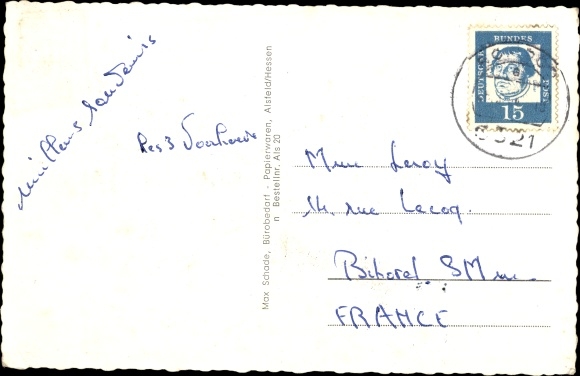 Meilleurs souvenirs
Les 3
Max Schade, Bürobedarf - Papierwaren, Alsfeld/Hessen
n Bestellnr. Als 20
DEUTSCHE BUNDES POST
15
6321
Mme Leroy
14. rue Lecoq.
Bihorel S Mme
FRANCE